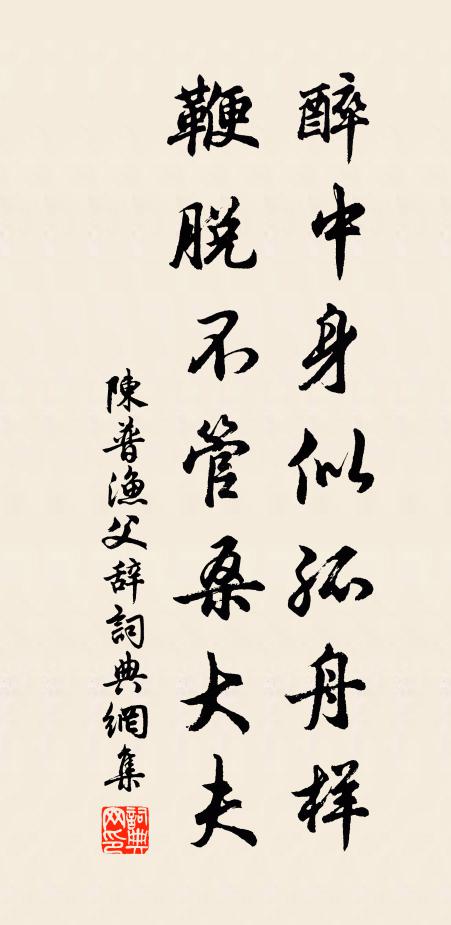 醉中身似孤舟样
鞭脱不管桑大夫
陳普漁父辞詞典網集
詞典网印